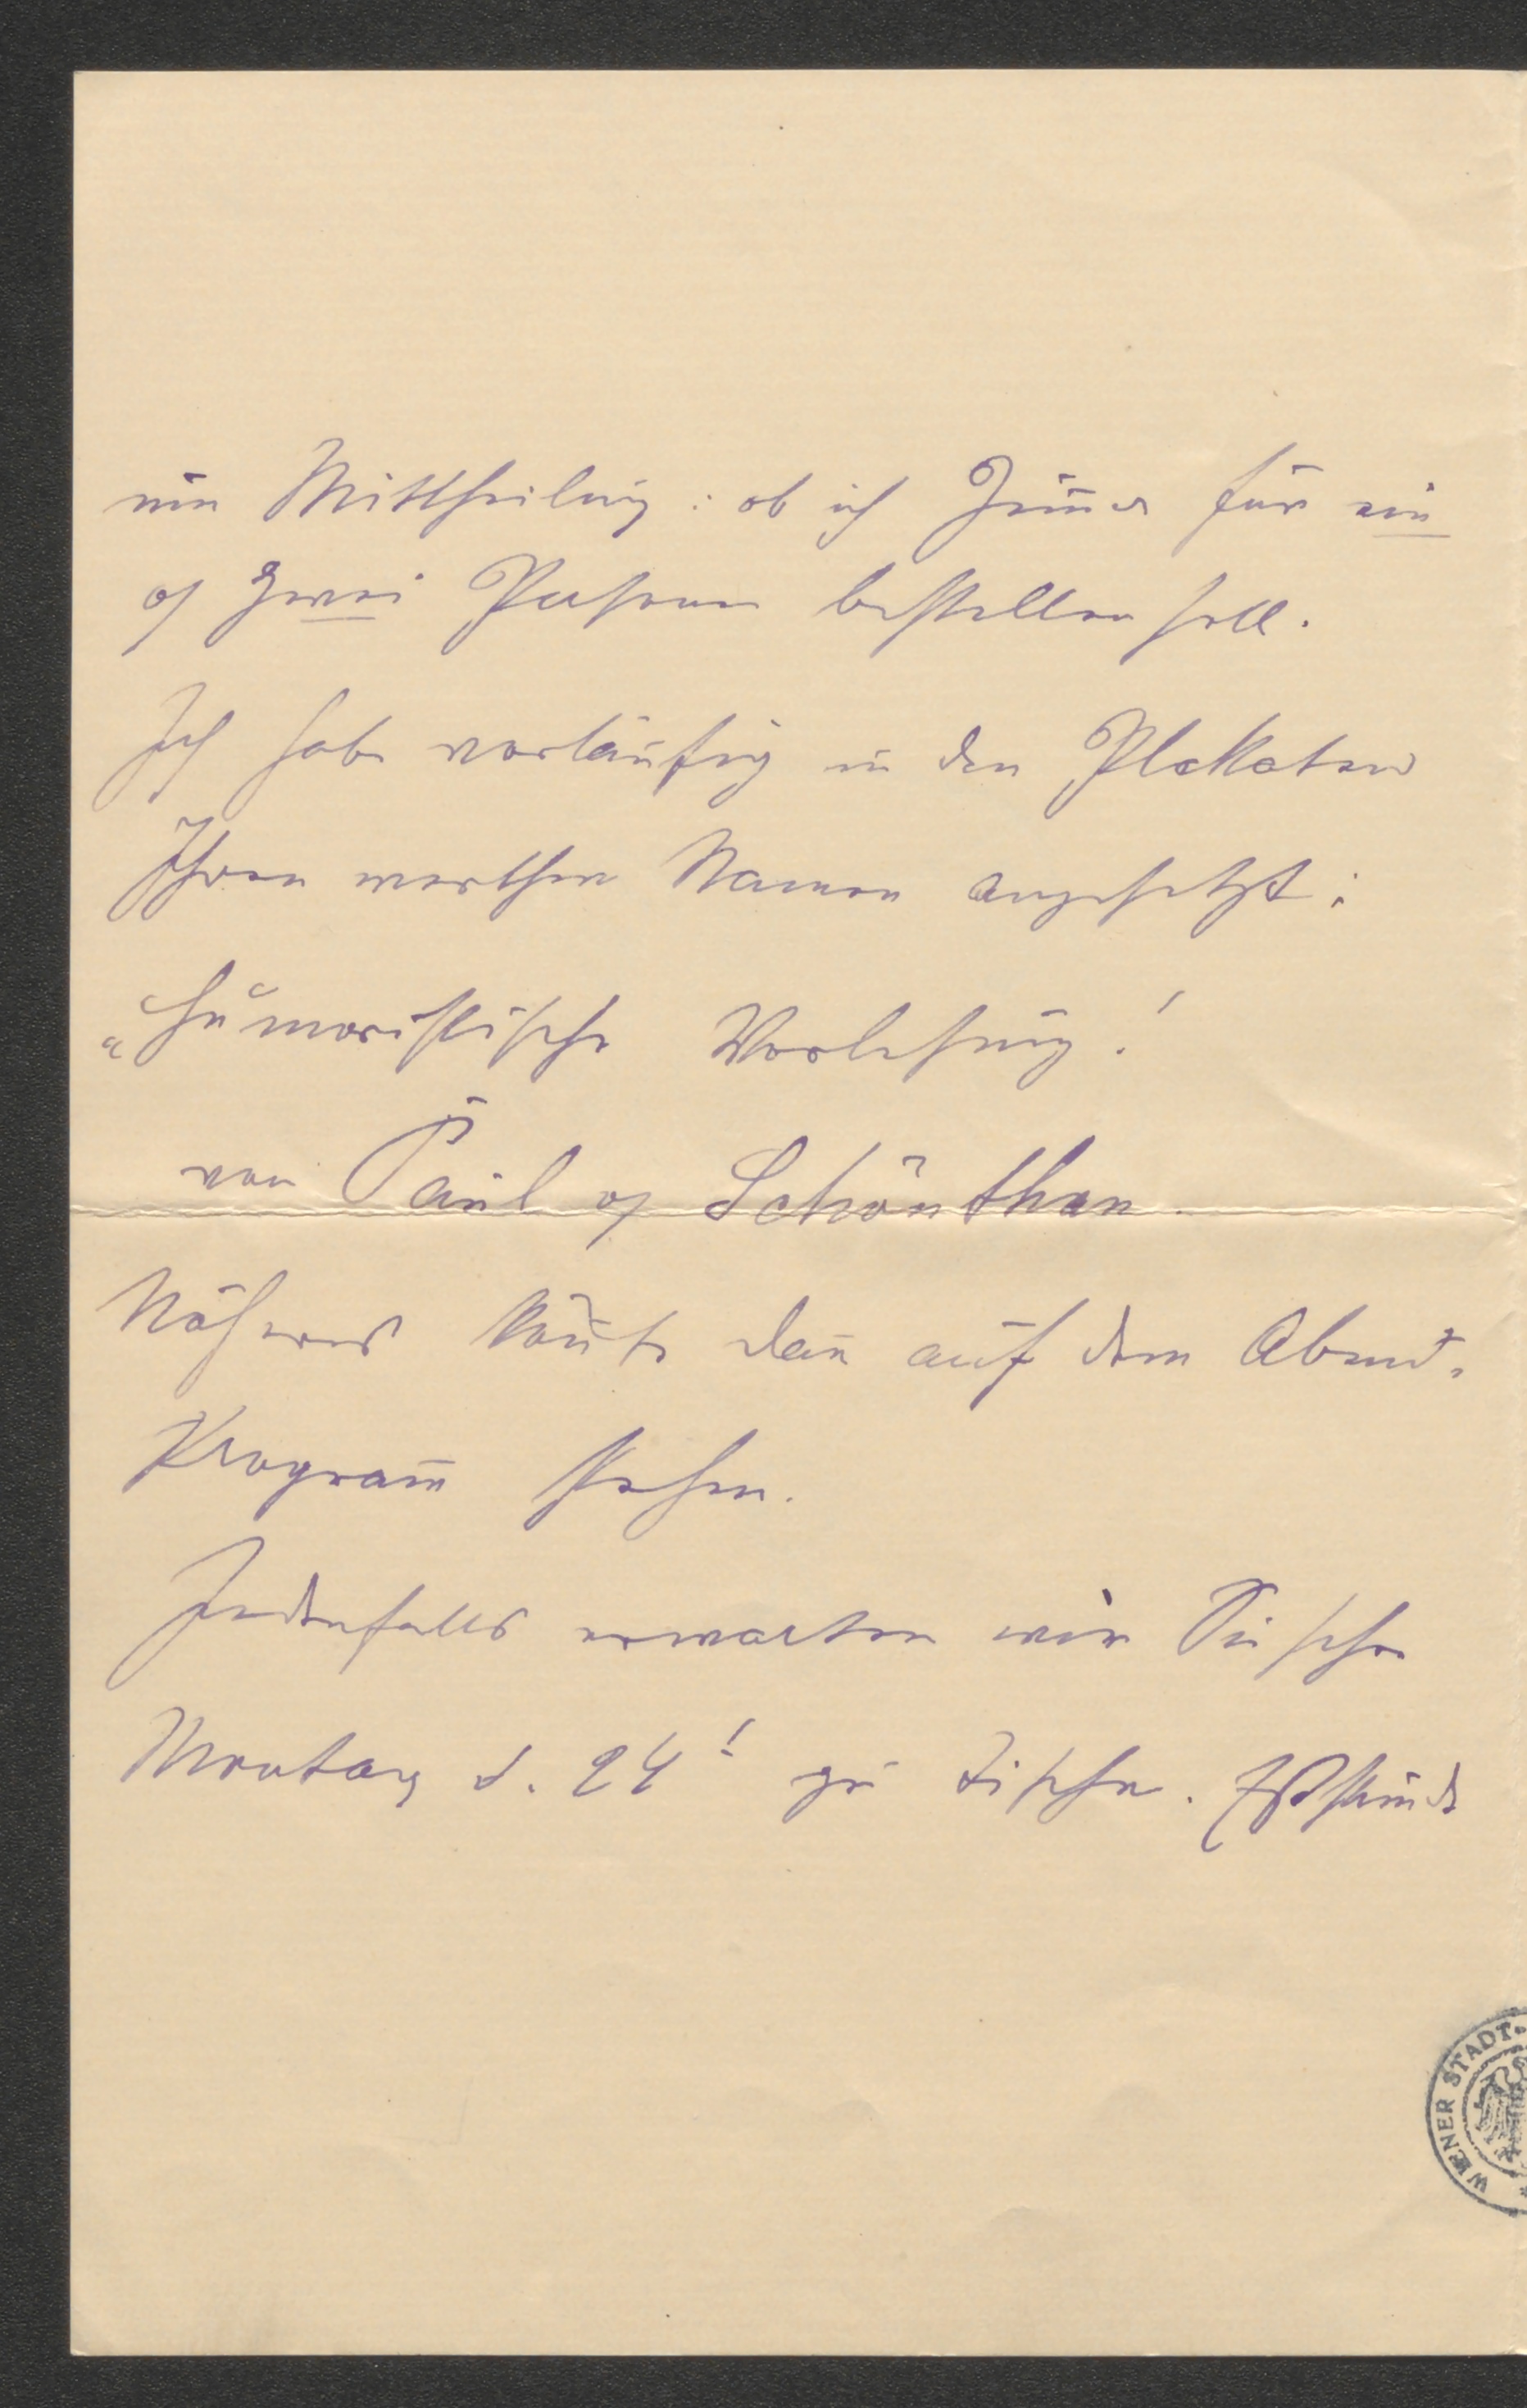 um Mittheilung: ob ich Zim̄er für ein
od zwei Personen bestellen soll.
Ich habe vorläufig in den Plakaten
Ihren werthen Namen angesetzt:
„Humoristische Vorlesung!
von Paul v Schönthan.
Näheres kön̄te dan̄ auf dem Abend-
Program̄ stehen.
Jedenfalls erwarten wir Sie schon
Montag d. 24! zu Tische. Eßstunde
WIENER STADT-